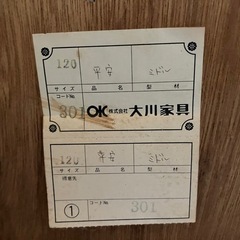 120 平安 ミドル
サイズ 品名 型材
コードNo.
301 OK 株式会社 大川家具
120 平安 ミドル
サイズ 品名 型材
得意先
コードNo.
① 301